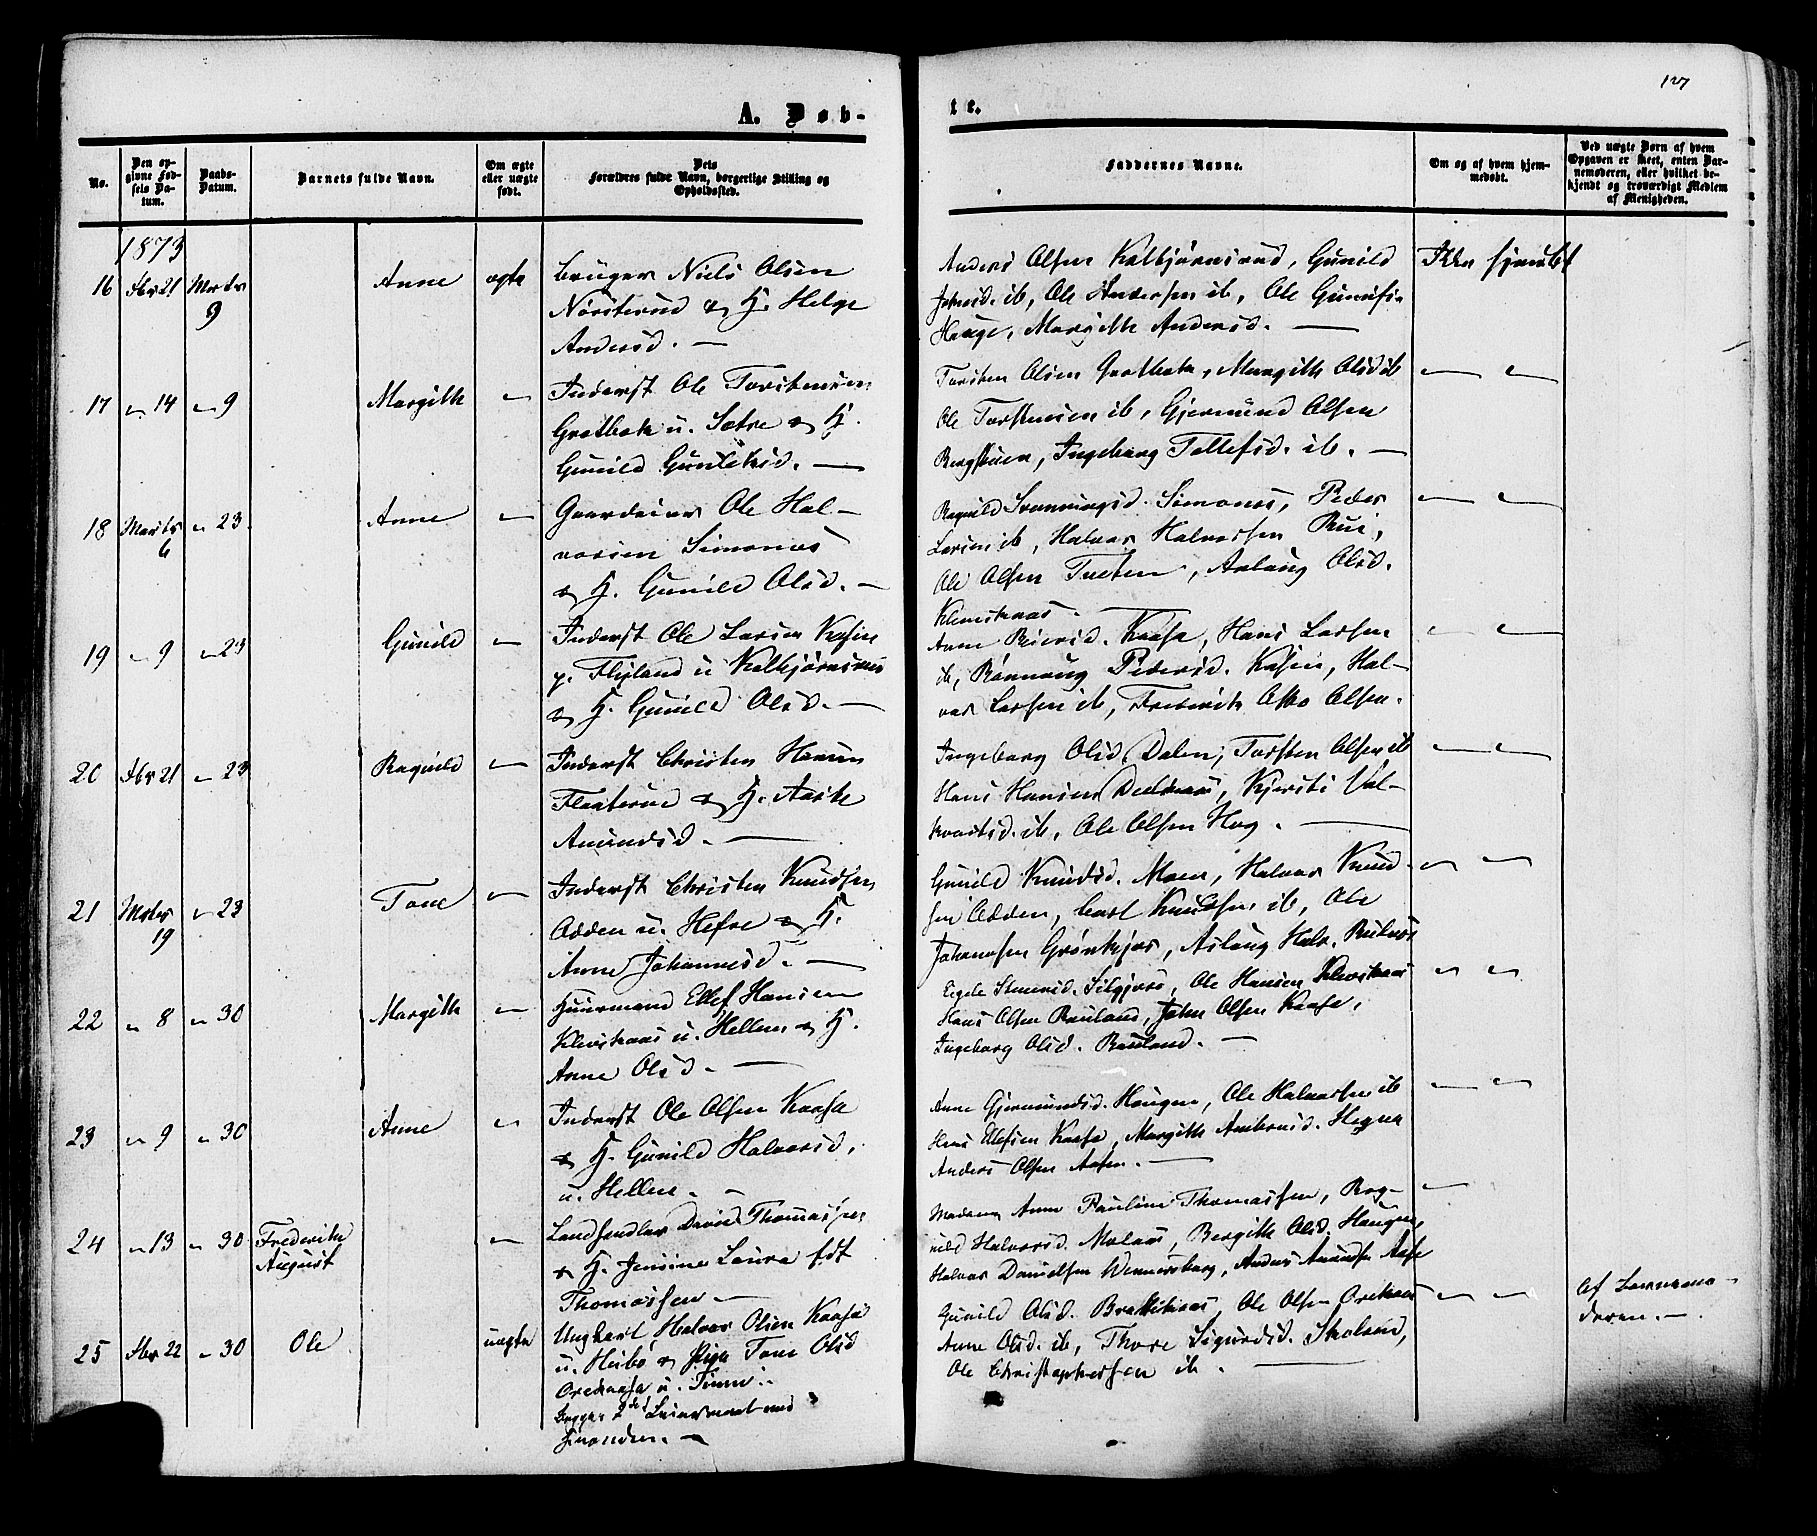 127
A. Døb-
te.
No.
Den opgivne Fødsels Datum.
Daabs-Datum.
Barnets fulde Navn.
Om ægte eller uægte født.
Dets Forældres fulde Navn, borgerlige Stilling og Opholdssted.
Faddernes Navne.
Om og af hvem hjemmedøbt.
Ved uægte Børn af hvem Opgaven er skeet, enten Barnemoderen, eller hvilket bekjendt og troværdigt Medlem af Menigheden.
1873
16 Fbr 21 Marts 9 Anne ægte
Bruger Niels Olsen
Nørsterud & H. Helge
Andersd. —
Anders Olsen Kalbjørnsrud, Gunild
Johnsd. ib, Ole Andersen ib, Ole
Hauge, Margith Andersd. —
Ikke hjemdbt
17 " 14 " 9 Margith "
Inderst Ole Torstensen
Grotbæk u. Sætre & H.
Gunild Gunleksd. —
Torsten Olsen Grotbæk, Margith Olsd ib
Ole Torstensen ib, Gjermund Olsen
Ingeborg Tollefsd. ib. —
" "
18 Marts 6 " 23 Anne "
Gaardeier Ole Hal-
vorsen Simonæs
& H. Gunild Olsd. —
Ragnild Svenningsd. Simonæs, Peder
Larsen ib, Halvor Halvorsen Rui,
Ole Olsen Tveten, Aslaug Olsd.
Klevstranæs. —
" "
19 " 9 " 23 Gunild "
Inderst Ole Larsen Kasin
p. Flisland u Kalbjørnsrud
& H. Gunild Olsd. —
Anne Kaasa, Hans Larsen
ib, Rønnaug Pedersd. Kasin, Hal-
vor Larsen ib, Frederik Otto Olsen.
" "
20 Fbr 21 " 23 Ragnild "
Inderst Christen Hansen
Flaaterud & H. Aaste
Amundsd. —
Ingeborg Olsd. Dalen, Torsten Olsen ib
Hans Hansen Kjersti Vol-
ib, Ole Olsen Hag. —
" "
21 Marts 19 " 23 Tone "
Inderst Christen Knudsen
Odden u. Hefre & H.
Anne Johannesd. —
Gunild Knudsd. Moen, Halvor Knud-
sen Odden, Carl Knudsen ib, Ole
Johannesen Grønkjær, Aslaug Halv.
" "
22 " 8 " 30 Margith "
Huusmand Ellef Hansen
Klevstranæs u. Hellem & H.
Anne Olsd. —
Ole Hansen Klevstranæs
Hans Olsen Rauland, John Olsen Kaasa,
Ingeborg Olsd. Rauland. —
" "
23 " 9 " 30 Anne "
Inderst Ole Olsen Kaasa
& H. Gunild Halvorsd.
u. Hellem. —
Anne Gjermundsd. Haugen, Ole Halvorsen ib
Hans Ellefsen Kaasa, Margith Hegna
Anders Olsen Aasen. —
" "
24 " 13 " 30 Frederik August "
Landhandler David Thomassen
& H. Jensine Laura født
Thomassen —
Madam Anne Pauline Thomassen, Rag-
nild Halvorsd. Bergith Olsd. Haugen,
Halvor Danielsen Wennersberg, Anders Amundsen Aase
"
25 Fbr 22 " 30 Ole uægte
Ungkarl Halvor Olsen Kaasa
u. Heibø & Pige Tone Olsd
u. Tinne.
Begges 2det Leiermaal med
hinanden. —
Gunild Olsd. Ole Olsen
Anne Olsd. ib, Thore Sigurdsd. Skoland,
Ole Christophersen ib. —
" "
Af Barnemo-
deren. —